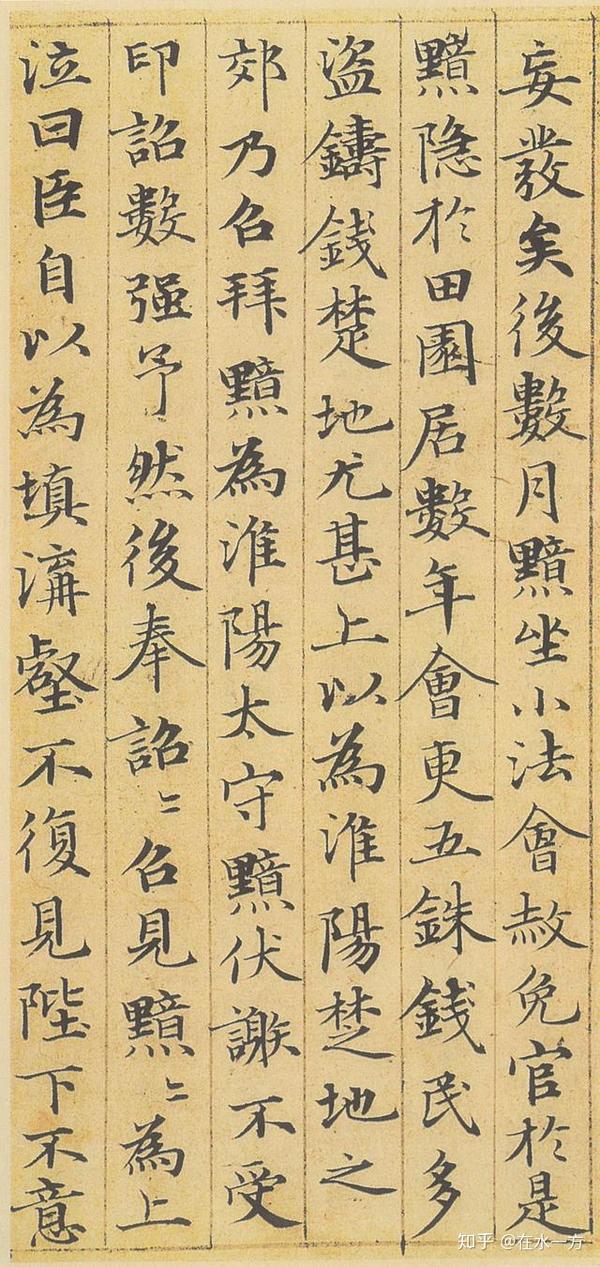 妄發矣後數月黯坐小法會赦免官於是
黯隱於田園居數年會更五銖錢民多
盜鑄錢楚地尤甚上以為淮陽楚地之
郊乃召拜黯為淮陽太守黯伏謝不受
印詔數强予然後奉詔〻召見黯〻為上
泣曰臣自以為填溝壑不復見陛下不意
知乎 @在水一方